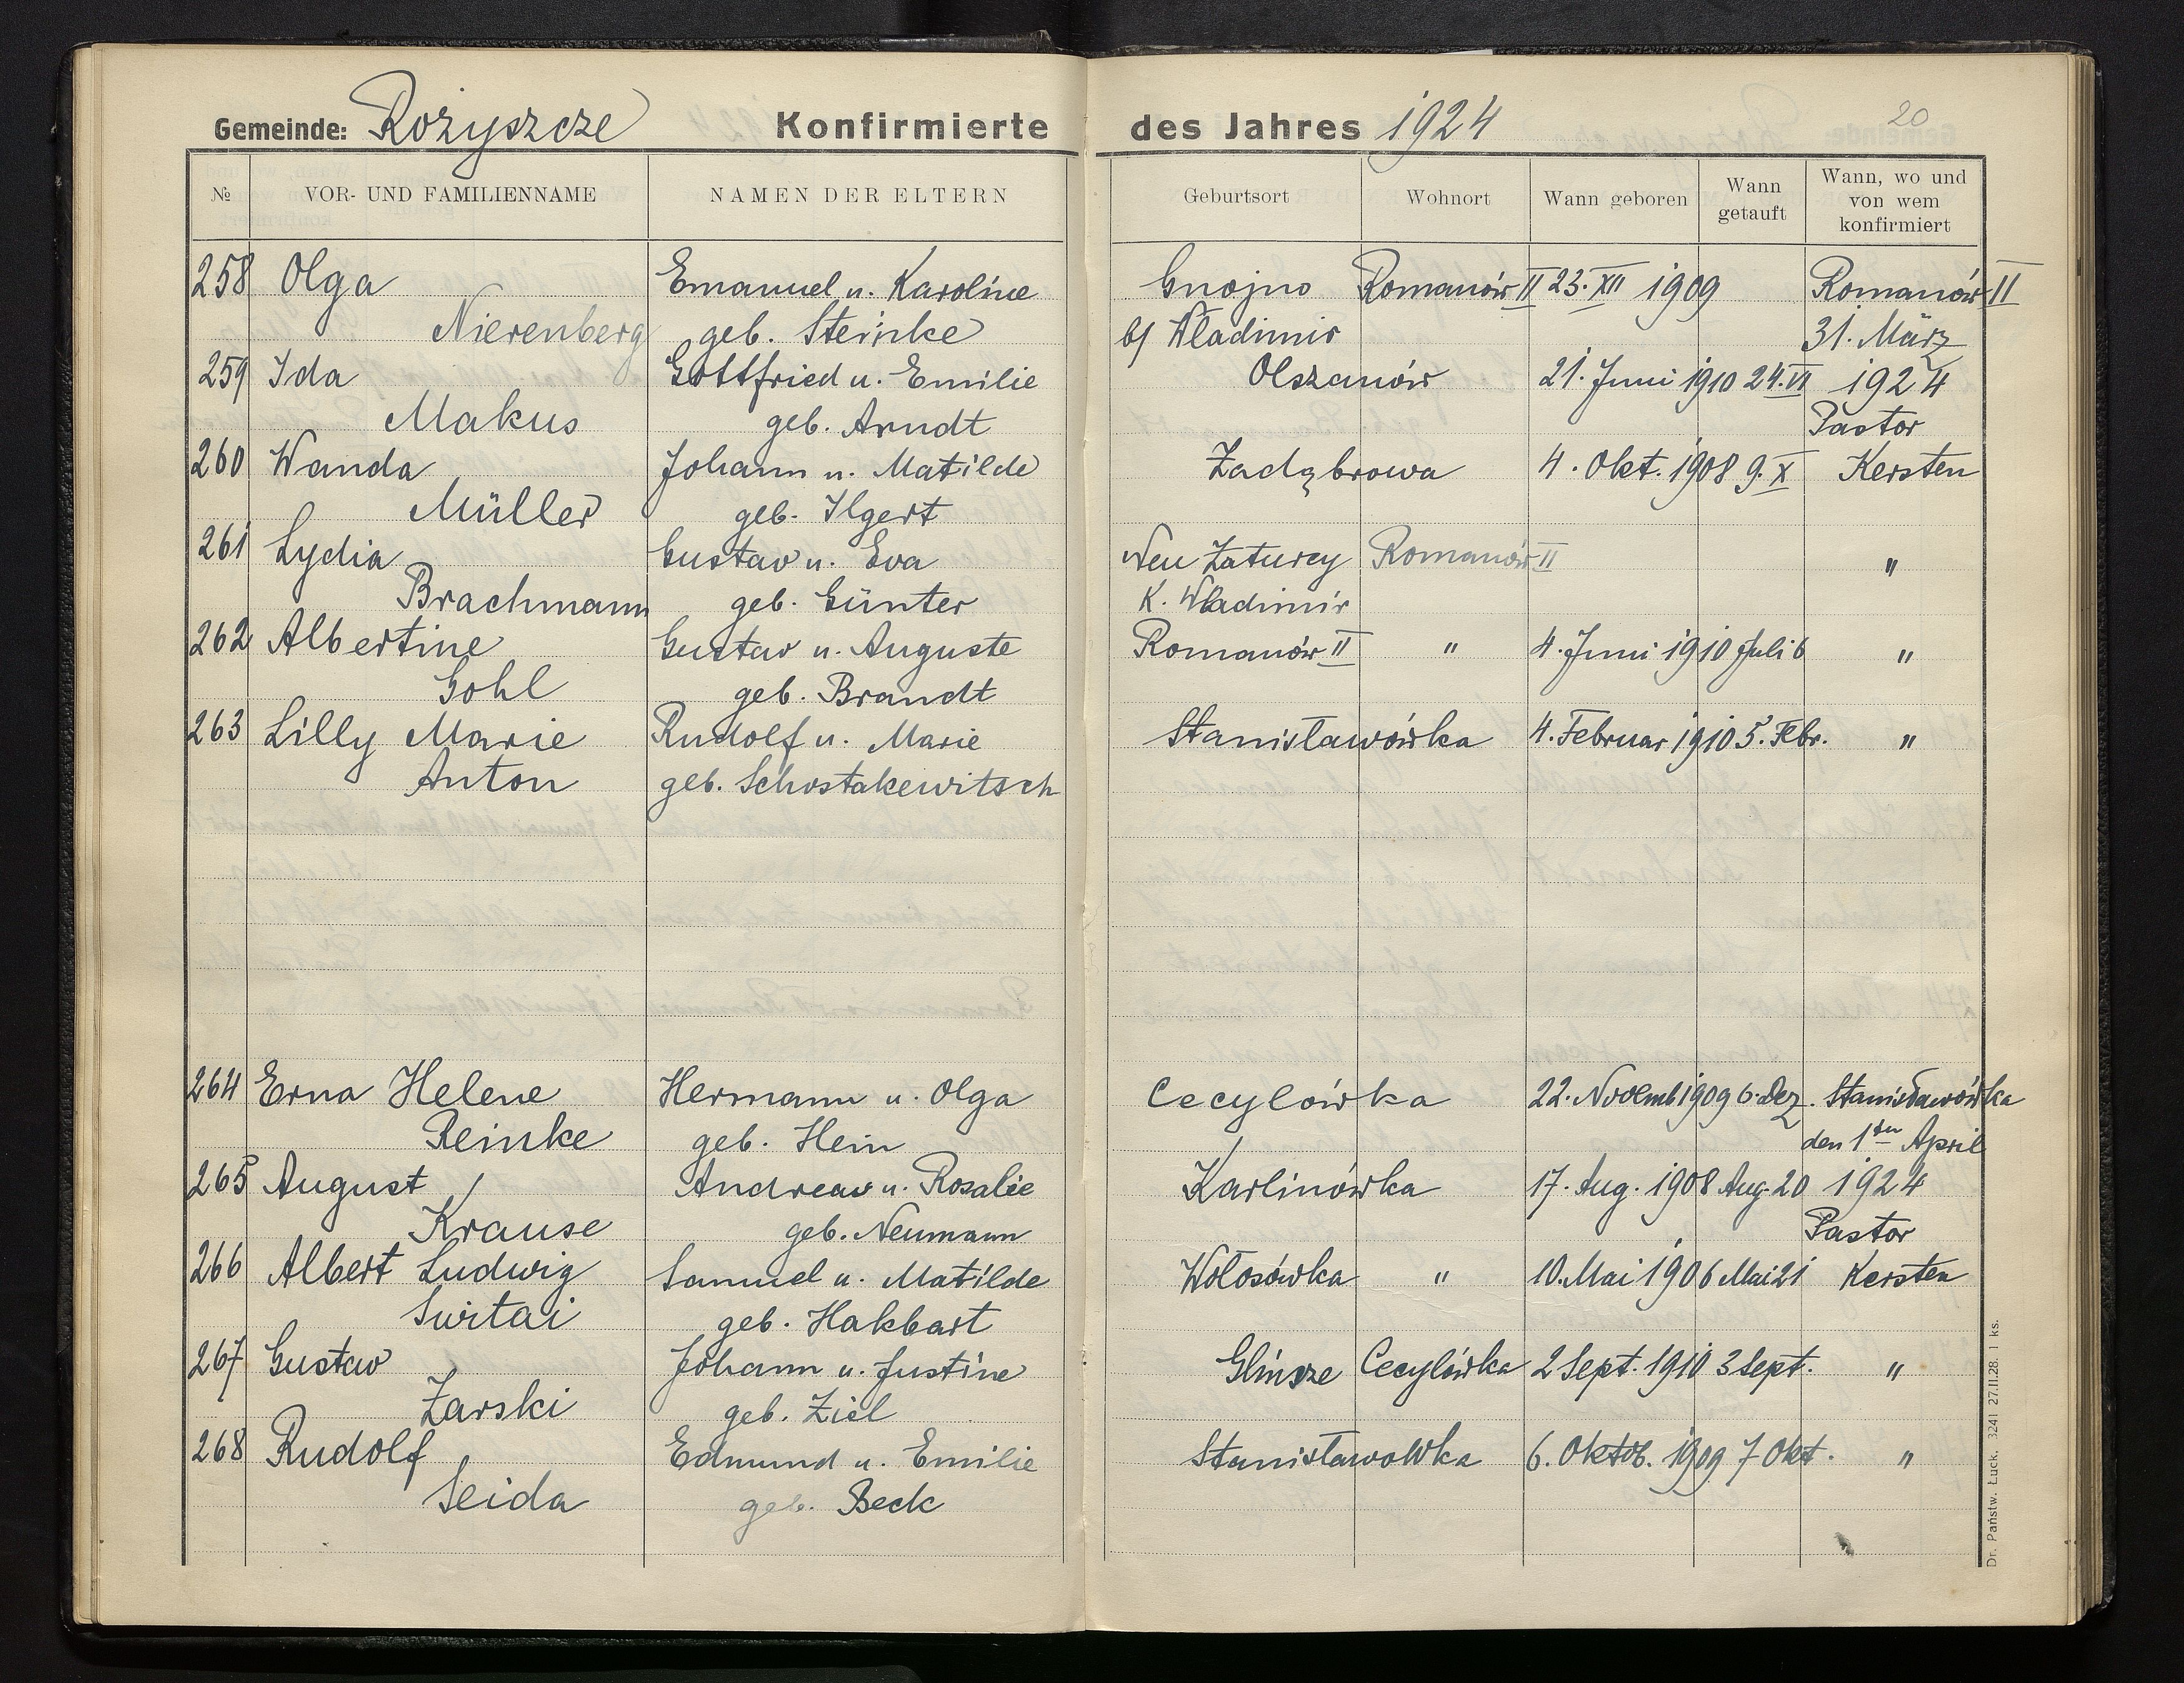 Gemeinde: Rożyszcze Konfirmierte des Jahres 1924
20
№ VOR- UND FAMILIENNAME NAMEN DER ELTERN Geburtsort Wohnort Wann geboren Wann getauft Wann, wo und von wem konfirmiert
258 Olga Emanuel u. Karoline Gnojno Romanów II 23. XII 1909 Romanów II
Nierenberg geb. Steinke b/ Wladimir 31. März
259 Ida Gottfried u. Emilie Olszanów 21. Juni 1910 24. VI 1924
Makus geb. Arndt Pastor
260 Wanda Johann u. Matilde Zadąbrowa 4. Okt. 1908 9. X Kersten
Müller geb. Ilgert
261 Lydia Gustav u. Eva Neu Zaturcy Romanów II "
Brachmann geb. Günter K. Wladimir
262 Albertine Gustav u. Auguste Romanów II " 4. Juni 1910 Juli 6 "
Gohl geb. Brandt
263 Lilly Marie Rudolf u. Marie Stanisławówka 4. Februar 1910 5. Febr. "
Anton geb. Schostakewitsch
264 Erna Helene Hermann u. Olga Cecylówka 22. Novemb 1909 6. Dez. Stanisławówka
Reinke geb. Hein den 1ten April
265 August Andreas u. Rosalie Karlinówka 17. Aug. 1908 Aug. 20 1924
Krause geb. Neumann Pastor
266 Albert Ludwig Samuel u. Matilde Wołosówka " 10. Mai 1906 Mai 21 Kersten
Switai geb. Hakbart
267 Gustav Johann u. Justine Cecylówka 2 Sept. 1910 3 Sept. "
Zarski geb. Ziel
268 Rudolf Edmund u. Emilie Stanisławowka 6. Oktob. 1909 7 Okt. "
Seida geb. Beck
Dr. Państw. Łuck. 3241 27.II.28. 1 ks.